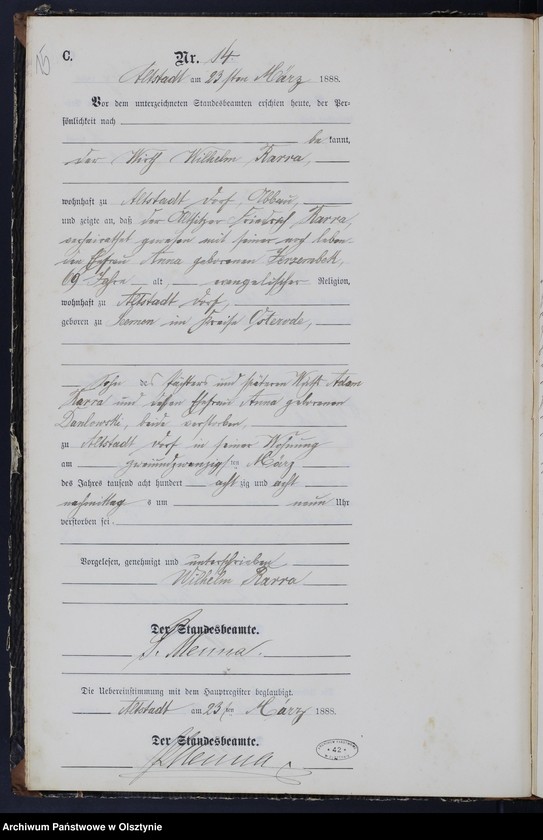 C.
Nr. 14
Altstadt am 23sten März 1888.
Vor dem unterzeichneten Standesbeamten erschien heute, der Per-
sönlichkeit nach
be kannt,
der Wirth Wilhelm Karra,
wohnhaft zu Altstadt Dorf Abbau,
und zeigte an, daß der Altsitzer Friedrich Karra,
verheirathet gewesen mit seiner noch leben-
den Ehefrau Anna geborenen
69 Jahre alt, evangelischer Religion,
wohnhaft zu Altstadt Dorf,
geboren zu im Kreise Osterode,
Sohn des Pächters und späteren Wirth Adam
Karra und dessen Ehefrau Anna geborenen
Danlowski, beide verstorben
zu Altstadt Dorf in seiner Wohnung
am zweiundzwanzigsten März
des Jahres tausend acht hundert acht zig und acht
nachmittag s um neun Uhr
verstorben sei.
Vorgelesen, genehmigt und unterschrieben
Wilhelm Karra
Der Standesbeamte.
Menna.
Die Uebereinstimmung mit dem Hauptregister beglaubigt.
Altstadt am 23sten März 1888.
Der Standesbeamte.
Menna
42
Archiwum Państwowe w Olsztynie